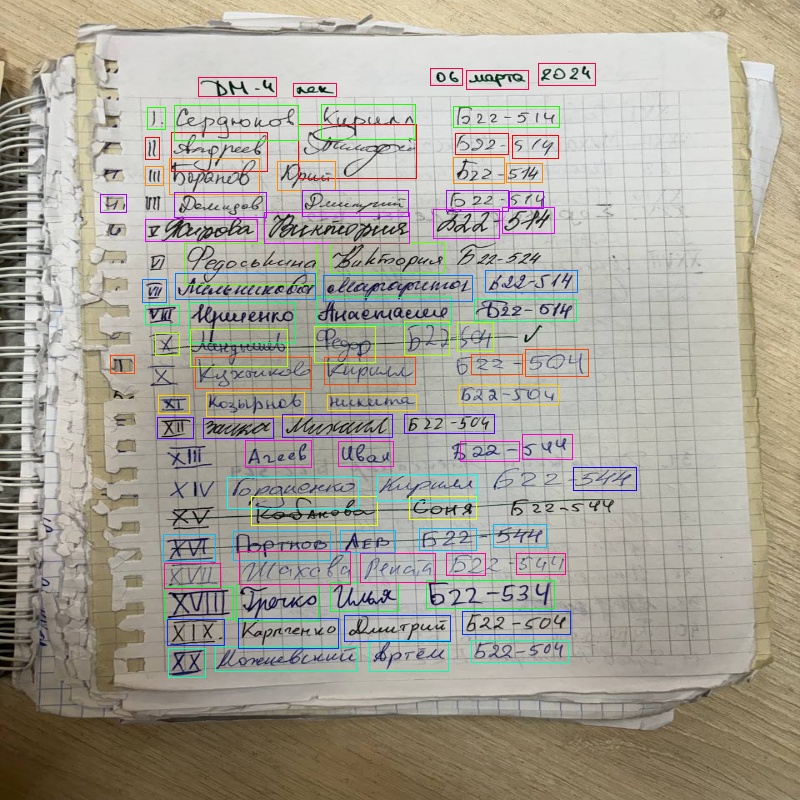 ДМ-4 лек 06 марта 2024
I. Сердюков Кирилл Б22-514
II Андреев Тимофей Б22-514
III Баранов Юрий Б22-514
IIII Демидов Дмитрий Б22-514
V Виктория Б22-514
VI Федоськина Виктория Б22-524
VII Мельникова Маргарита Б22-514
VIII Ирменко Анастасия Б22-514
X Ландышь Федор Б22-504 ✓
X Кухтиков Кирилл Б22-504
XI Козырнов никита Б22-504
XII Заика Михаил Б22-504
XIII Агеев Иван Б22-544
XIV Гордиенко Кирилл Б22-544
XV Кабакова Соня Б22-544
XVI Портнов Лев Б22-544
XVII Шахова Рената Б22-544
XVIII Гречко Илья Б22-534
XIX. Карпенко Дмитрий Б22-504
XX Можневский Артём Б22-504